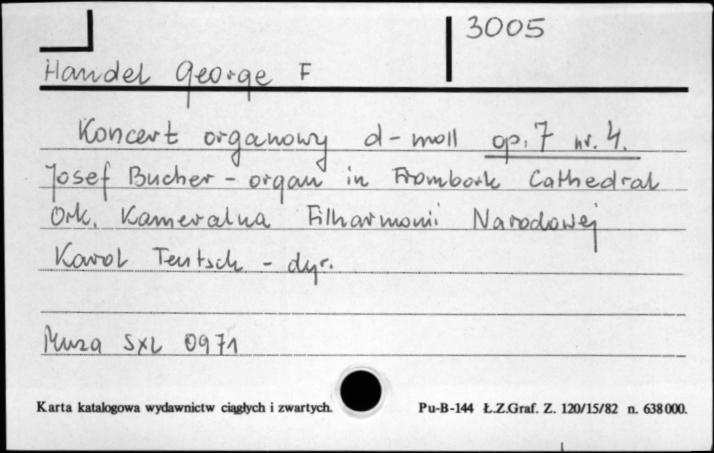 3005
Handel George F
Koncert organowy d-moll op. 7 nr. 4.
Josef Bucher - organ in Frombork Cathedral
Ork. Kameralna Filharmonii Narodowej
Karol Teutsch - dyr.
Muza SXL 0971
Karta katalogowa wydawnictw ciągłych i zwartych. Pu-B-144 Ł.Z.Graf. Z. 120/15/82 n. 638000.